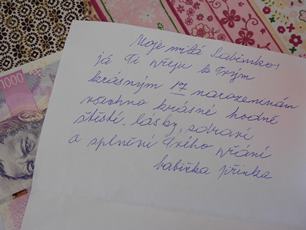 Moje milá Sabinko!
já Ti přeju k Tvým
krásným 17 narozeninám
všechno krásné hodně
štěstí, lásky, zdraví
a splnění Tvého přání
babička
1000